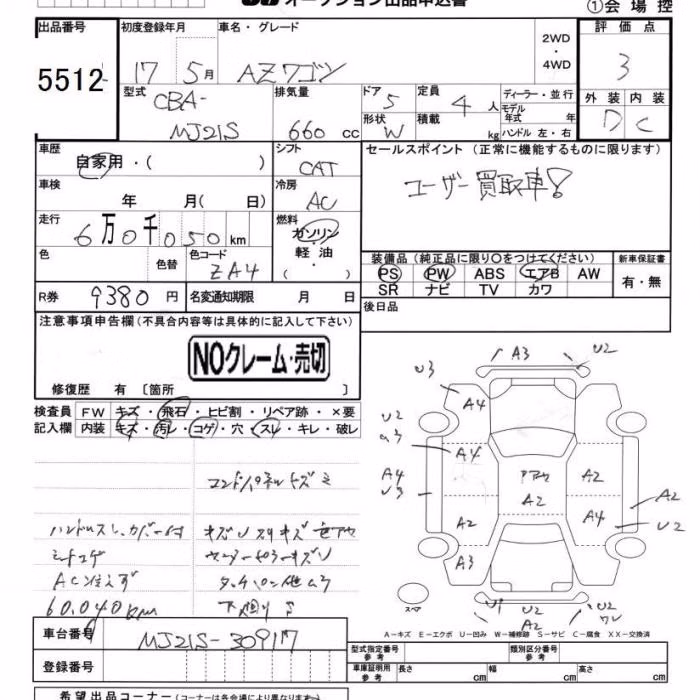 オークション出品申込書
①会場控
出品番号 5512
初度登録年月 17 5月
車名・グレード AZワゴン
2WD・4WD
評価点 3
型式 CBA-MJ21S
排気量 660 cc
ドア 5
形状 W
定員 4 人
積載 kg
ディーラー・並行
モデル年式 年
ハンドル 左・右
外装 D
内装 C
車歴 自家用・( )
シフト CAT
セールスポイント (正常に機能するものに限ります)
ユーザー買取車!
車検 年 月( 日)
冷房 AC
走行 6万0千050km
燃料 ガソリン・軽油・( )
色 色替
色コード ZA4
装備品 (純正品に限り○をつけてください)
新車保証書
PS PW ABS エアB AW
SR ナビ TV カワ
有・無
R券 9380円
名変通知期限 月 日
後日品
注意事項申告欄 (不具合内容等は具体的に記入して下さい)
NOクレーム・売切
修復歴 有 〔箇所 〕
検査員記入欄
FW キズ・飛石・ヒビ割・リペア跡・×要
内装 キズ・汚レ・コゲ・穴・スレ・キレ・破レ
ハンドルスレ カバー付
シートコゲ
60,040km
U3 A3 U2
A4
U2
A4 A4
U3
アアウ A2
A2
A2 A4 A2
U2
A3
スペア
U1 U2
A2
A-キズ E-エクボ U-凹み W-補修跡 S-サビ C-腐食 XX-交換済
車台番号 MJ21S-309117
登録番号
型式指定番号 参考
類別区分番号 参考
車庫証明用 参考
長さ cm 幅 cm 高さ cm
希望出品コーナー (コーナーは各会場により異なります)